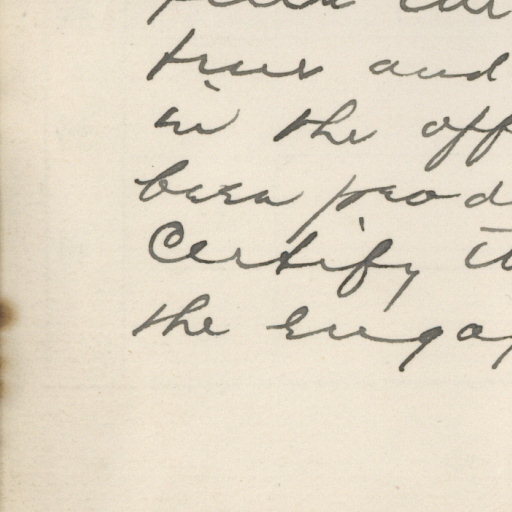 true and
in the off
been prod
Certify t
the engag